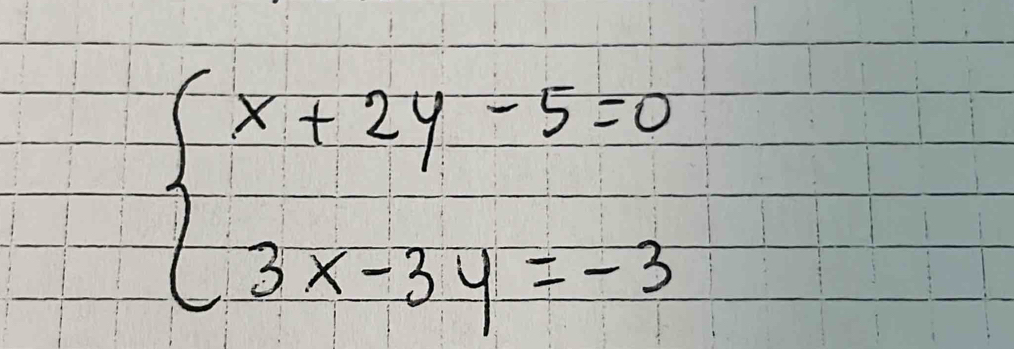 x + 2y - 5 = 0
3x - 3y = -3